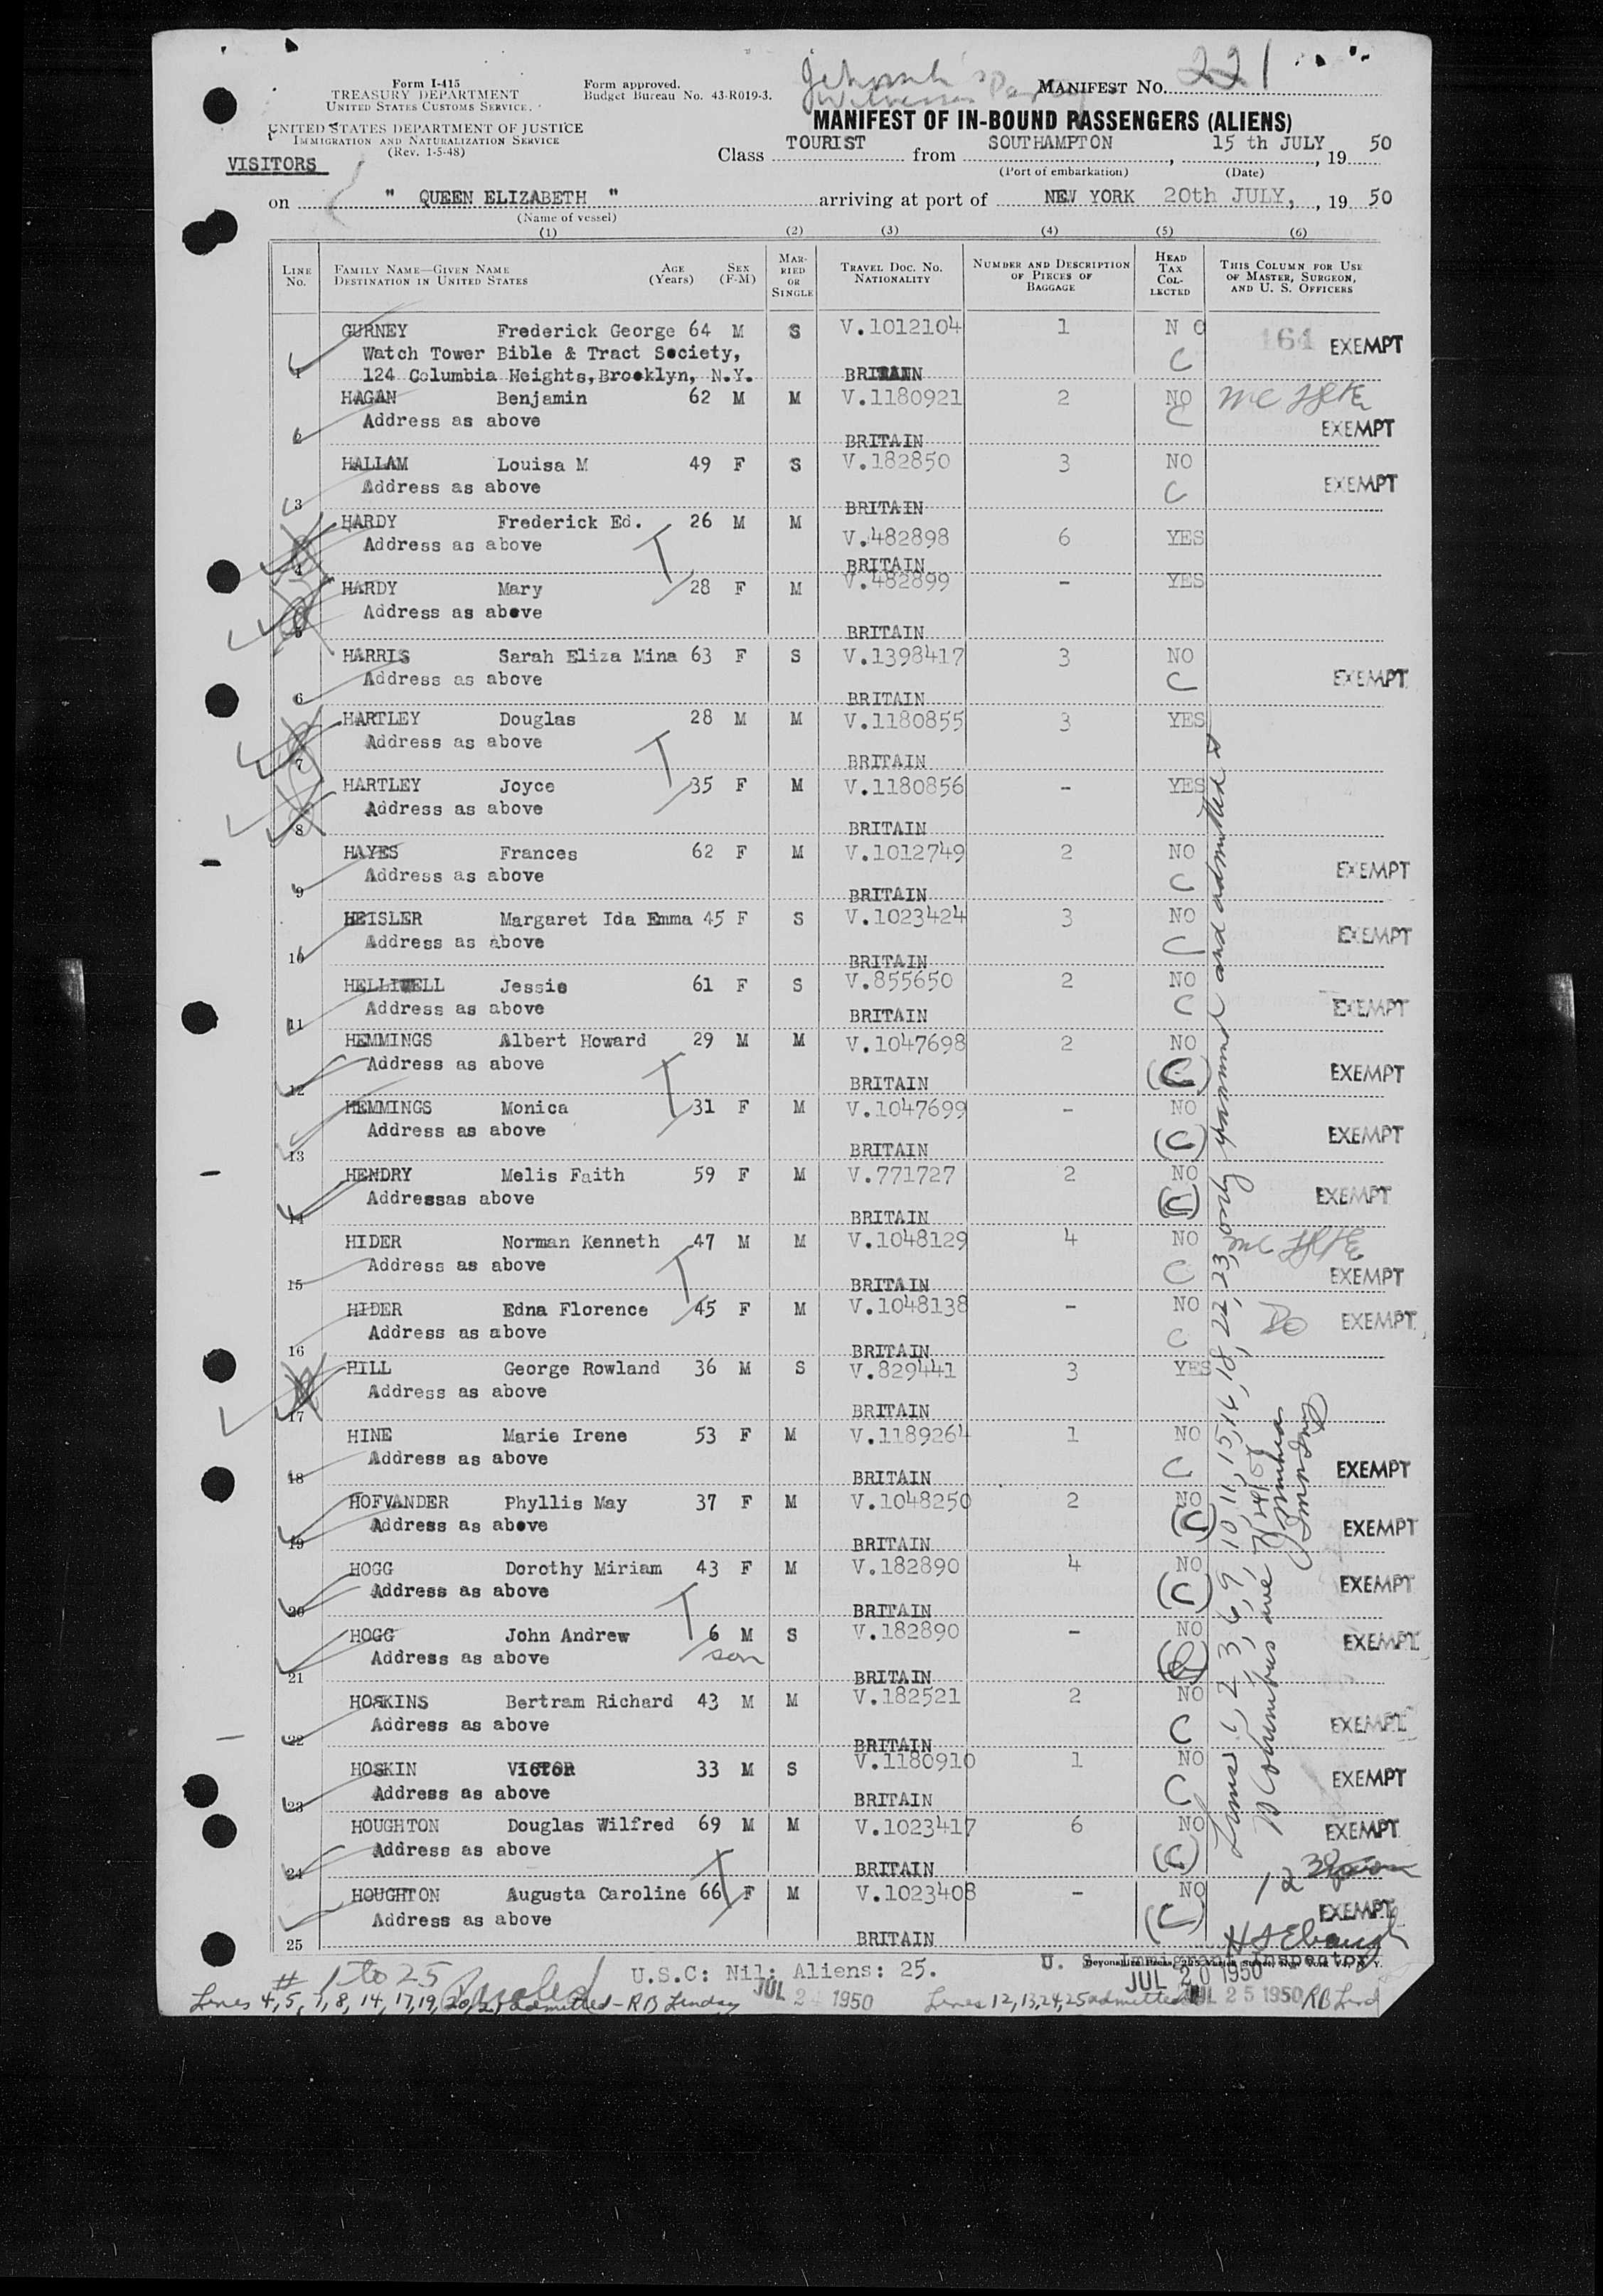 Form I-415
TREASURY DEPARTMENT
UNITED STATES CUSTOMS SERVICE.
UNITED STATES DEPARTMENT OF JUSTICE
IMMIGRATION AND NATURALIZATION SERVICE
(Rev. 1-5-48)
Form approved.
Budget Bureau No. 43-R019-3.
Jehovah's
Witnesses Party
MANIFEST NO. 221
MANIFEST OF IN-BOUND PASSENGERS (ALIENS)
VISITORS
Class TOURIST from SOUTHAMPTON, 15 th JULY, 19 50
(Port of embarkation) (Date)
on " QUEEN ELIZABETH " arriving at port of NEW YORK 20th JULY, , 19 50
(Name of vessel)
(1) (2) (3) (4) (5) (6)
LINE NO. FAMILY NAME—GIVEN NAME DESTINATION IN UNITED STATES AGE (Years) SEX (F-M) MARRIED OR SINGLE TRAVEL DOC. NO. NATIONALITY NUMBER AND DESCRIPTION OF PIECES OF BAGGAGE HEAD TAX COLLECTED THIS COLUMN FOR USE OF MASTER, SURGEON, AND U. S. OFFICERS
GURNEY Frederick George 64 M S V.1012104 1 N O 164 EXEMPT
Watch Tower Bible & Tract Society, C
1 124 Columbia Heights, Brooklyn, N.Y. BRITAIN
HAGAN Benjamin 62 M M V.1180921 2 NO
Address as above C EXEMPT
2 BRITAIN
HALLAM Louisa M 49 F S V.182850 3 NO
Address as above C EXEMPT
3 BRITAIN
HARDY Frederick Ed. 26 M M V.482898 6 YES
Address as above
4 BRITAIN
HARDY Mary 28 F M V.482899 - YES
Address as above
5 BRITAIN
HARRIS Sarah Eliza Mina 63 F S V.1398417 3 NO
Address as above C EXEMPT
6 BRITAIN
HARTLEY Douglas 28 M M V.1180855 3 YES
Address as above
7 BRITAIN
HARTLEY Joyce 35 F M V.1180856 - YES
Address as above
8 BRITAIN
HAYES Frances 62 F M V.1012749 2 NO
Address as above C EXEMPT
9 BRITAIN
HEISLER Margaret Ida Emma 45 F S V.1023424 3 NO
Address as above C EXEMPT
10 BRITAIN
HELLIWELL Jessie 61 F S V.855650 2 NO
Address as above C EXEMPT
11 BRITAIN
HEMMINGS Albert Howard 29 M M V.1047698 2 NO
Address as above (C) EXEMPT
12 BRITAIN
HEMMINGS Monica 31 F M V.1047699 - NO
Address as above (C) EXEMPT
13 BRITAIN
HENDRY Melis Faith 59 F M V.771727 2 NO
Addressas above (C) EXEMPT
14 BRITAIN
HIDER Norman Kenneth 47 M M V.1048129 4 NO
Address as above C EXEMPT
15 BRITAIN
HIDER Edna Florence 45 F M V.1048138 - NO Do EXEMPT
Address as above C
16 BRITAIN
HILL George Rowland 36 M S V.829441 3 YES
Address as above
17 BRITAIN
HINE Marie Irene 53 F M V.1189264 1 NO
Address as above C EXEMPT
18 BRITAIN
HOFVANDER Phyllis May 37 F M V.1048250 2 NO
Address as above (C) EXEMPT
19 BRITAIN
HOGG Dorothy Miriam 43 F M V.182890 4 NO
Address as above (C) EXEMPT
20 BRITAIN
HOGG John Andrew 6 M S V.182890 - NO
Address as above son (C) EXEMPT
21 BRITAIN
HOSKINS Bertram Richard 43 M M V.182521 2 NO
Address as above C EXEMPT
22 BRITAIN
HOSKIN VICTOR 33 M S V.1180910 1 NO
Address as above C EXEMPT
23 BRITAIN
HOUGHTON Douglas Wilfred 69 M M V.1023417 6 NO
Address as above (C) EXEMPT
24 BRITAIN
HOUGHTON Augusta Caroline 66 F M V.1023408 - NO
Address as above (C) EXEMPT
25 BRITAIN
Columbus Ave
H S Ebaugh
U. S. Immigrant Inspector
# 1 to 25 U.S.C: Nil: Aliens: 25. JUL 20 1950
Lines 4, 5, 7, 8, 14, 17, 19, 20, 21 admitted - RB Lindsay JUL 2 1950 Lines 12, 13, 24, 25 admitted JUL 25 1950 RB Lind